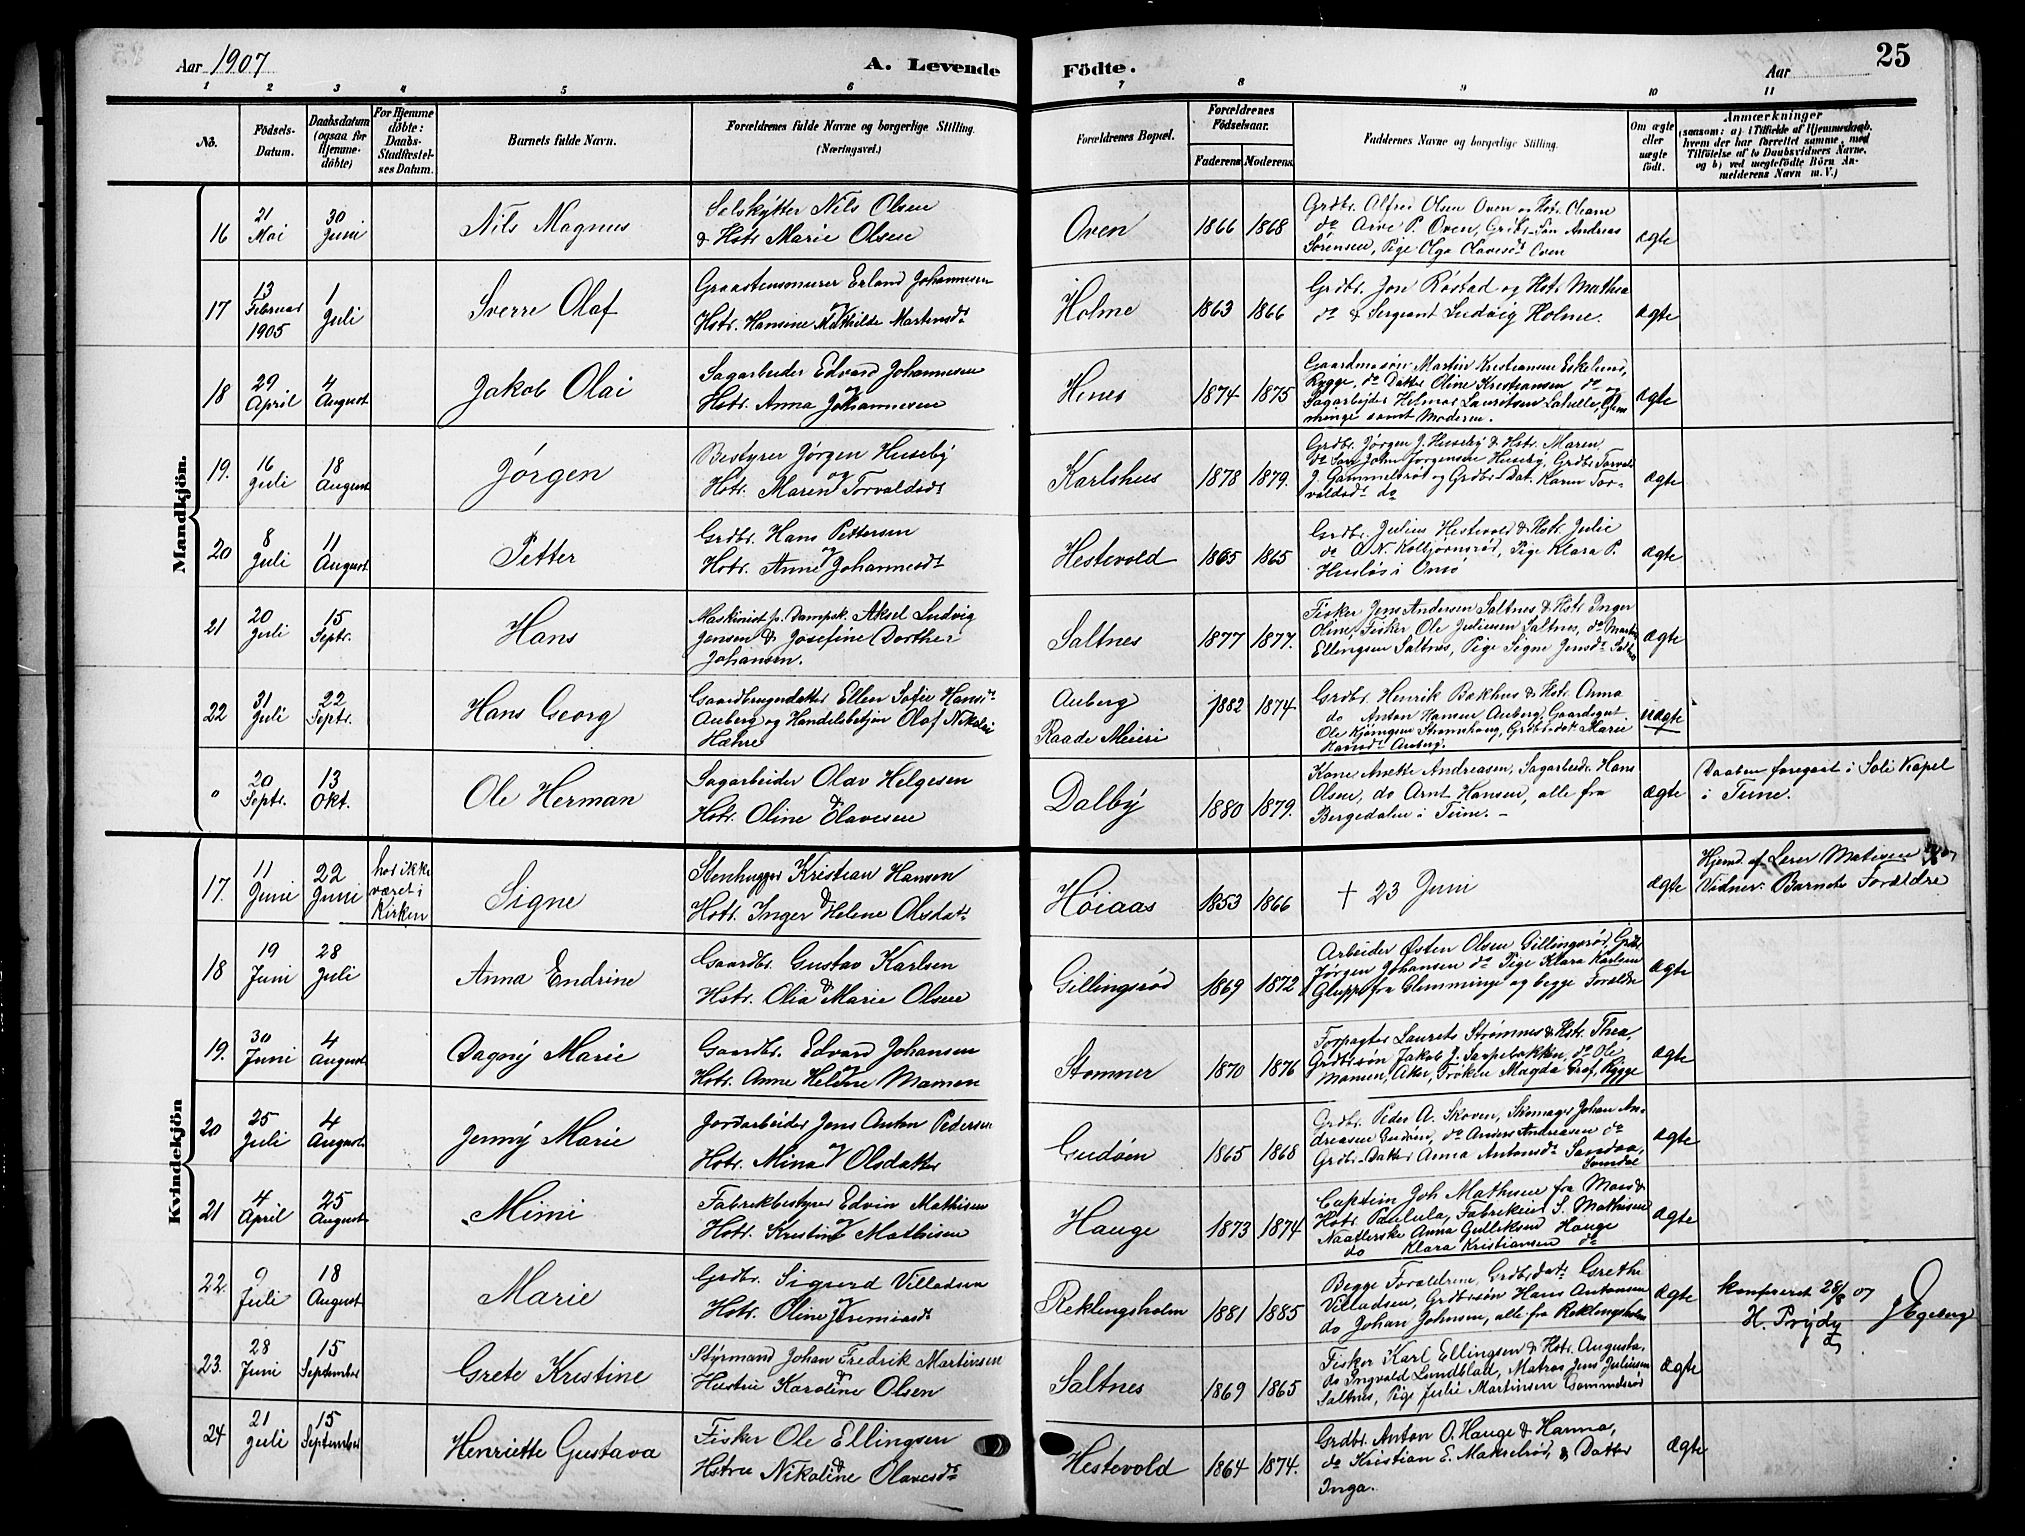 Aar 1907
A. Levende
Födte.
Aar
25
1 2 3 4 5 6 7 8 9 10 11
No.
Födsels-
Datum.
Daabsdatum
(ogsaa for
Hjemme-
döbte)
For Hjemme
döbte:
Daabs-
Stadfæstel-
ses Datum.
Barnets fulde Navn.
Forældrenes fulde Navne og borgerlige Stilling.
(Næringsvei.)
Forældrenes Bopæl.
Forældrenes
Födselsaar.
Faderens
Moderens.
Faddernes Navne og borgerlige Stilling.
Om ægte
eller
uægte
födt.
Anmærkninger
(saasom: a) i Tilfælde af Hjemmedaab.
hvem der har forrettet samme, med
Tilföielse af to Daabsvidners Navne,
og b) ved uegtefödte Börn An-
melderens Navn m. V.)
Mandkjön.
16
21
Mai
30
Juni
Nils Magnus
Selskytter Nils Olsen
& Hstr Marie Olsen
Oven
1866 1868
Grdbr. Alfred Olsen Oven
do Arve P. Oven, Grdbr. Sön Andreas
Sörensen, Pige Olga Olavesdt Oven
ægte
17
13
Februar
1905
1
Juli
Sverre Olaf
Graastensmurer Erland Johannesen
og
Hstr. Hansine Mathilde Martinsdt
Holme
1863 1866
Grdbr. Jon Röstad og Hstr Mathea
do & Sergeant Ludvig Holme.
ægte
18
29
April
4
August
Jakob Olai
Sagarbeider Edvard Johannesen
og
Hstr. Anna Johannesen
Henes
1874 1875
Gaardmandsön Martin Kristiansen
Rygge, do Datter Oline Kristiansen do og
Sagarbejder Helmer Lauritsen
minge samt Moderen.
ægte
19.
16
Juli
18
August
Jörgen
Bestyrer Jörgen Huseby
og
Hstr. Maren Torvaldsdt
Karlshus
1878 1879.
Grdbr. Jörgen J. Huseby & Hstr. Maren
do Sön John Jörgensen Huseby, Grdbr Torvald
J. Gammelsröd og Grdbr-Dat. Karen Tor-
valdsdt do
ægte
20
8
Juli
11
August
Petter
Grdbr. Hans Pettersen
og
Hstr. Anne Johannesdt
Hestevold
1865 1865
Grdbr. Julius Hestevold & Hstr. Julie
do A. N. Kolbjörnsröd, Pige Klara P.
Huslös i Onsö
ægte
21
20
Juli
15
Septr.
Hans
Maskinist p. Dampsk. Aksel Ludvig
Jensen & Josefine Dorthea
Johansen.
Saltnes
1877 1877.
Fisker Jens Andersen Saltnes & Hstr Inger
Oline, Fisker Ole Juliusen Saltnes, do Martin
Ellingsen Saltnes, Pige Signe Jensdt Saltnes
ægte
22
31
Juli
22
Septr.
Hans Georg
Gaardbrugerdatter Ellen Sofie Hansdt
Auberg og Handelsbetjen Olaf Nikolai
Hæhre
Auberg
Raade Meieri
1882 1874
Grdbr. Henrik Bækhus & Hstr. Anna
do Anton Hansen Auberg, Gaardsgut
Ole Kjöngsen Strömhaug, Grdbrdat Marie
Hansdt Auberg.
uægte
"
20
Septr.
13
Okt.
Ole Herman
Sagarbeider Olav Helgesen
&
Hstr. Oline Olavesen
Dalby
1880 1879.
Kone Anette Andreasen, Sagarbeidr. Hans
Olsen, do Arnt Hansen, alle fra
Bergedalen i Tune. –
ægte
Daaben foregaat i Soli Kapel
i Tune.
Kvindekjön
17.
11
Juni
22
Juni
har ikke
været i
Kirken
Signe
Stenhugger Kristian Hansen
&
Hstr. Inger Helene Olsdatr
Höiaas
1853 1866
† 23 Juni
ægte
Hjemd. af Lærer Matisen
Vidner: Barnets Forældre
18
19
Juni
28
Juli
Anna Endrine
Gaardbr. Gustav Karlsen
&
Hstr. Olia Marie Olsen
Gillingsröd
1869 1872
Arbeider Østen Olsen Gillingsröd, Grdbr.
Jörgen Johansen do Pige Klara Karlsen
Gluppe fra Glemminge og begge Forældre
ægte
19.
30
Juni
4
August
Dagny Marie
Gaardbr. Edvard Johansen
og
Hstr. Anne Helene Mamen
Stomner
1870 1876
Forpagter Laurets Strömnes & Hstr. Thea,
Grdbrsön Jakob J. Sarpebakken, do Ole
Mamen, Aker, Fröken Magda Graf, Rygge
ægte
20
25
Juli
4
August
Jenny Marie
Jordarbeider Jens Anton Pedersen
og
Hstr. Mina Olsdatter
Gudöin
1865 1868
Grdbr. Peder A. Skoven, Skomager Johan An-
dreasen Gudöin, do Anders Andreasen do
Grdbr-Datter Anna Antonsdt Sandaa,
Somdal
ægte
21
4
April
25
August
Mimi
Fabrikbestyrer Edvin Mathisen
og
Hstr. Kristine Mathisen
Hauge
1873 1874
Captein Joh Mathisen fra Moss &
Hstr. Paulula, Fabrikeier S. Mathisen
Anna Gulliksen Hauge
do Klara Kristiansen do
ægte
22.
9
Juli
18
August
Marie
Grdbr. Sigurd Villadsen
og
Hstr. Oline Jeremiasdt
Reklingsholm
1881 1885
Begge Forældrene, Grdbrdatr Grethe
Villadsen, Grdbrsön Hans Antonsen
do Johan Johnsen, alle fra Reklingsholm
ægte
konfereret 28/8 07
H. Prydz
J. Egeberg
23.
28
Juni
15
September
Grete Kristine
Styrmand Johan Fredrik Martinsen
&
Hustru Karoline Olsen
Saltnes
1869 1865
Fisker Karl Ellingsen & Hstr. Augusta,
do Ingvald Lundblad, Matros Jens Juliusen
Saltnes, Pige Julie Martinsen
ægte
24
21
Juli
15
September
Henriette Gustava
Fisker Ole Ellingsen
&
Hstru Nikoline Olavesdt
Hestevold
1864 1874.
Grdbr. Anton O. Hauge & Hanna,
do Kristian E. Makselröd, & Datter
Inga.
ægte